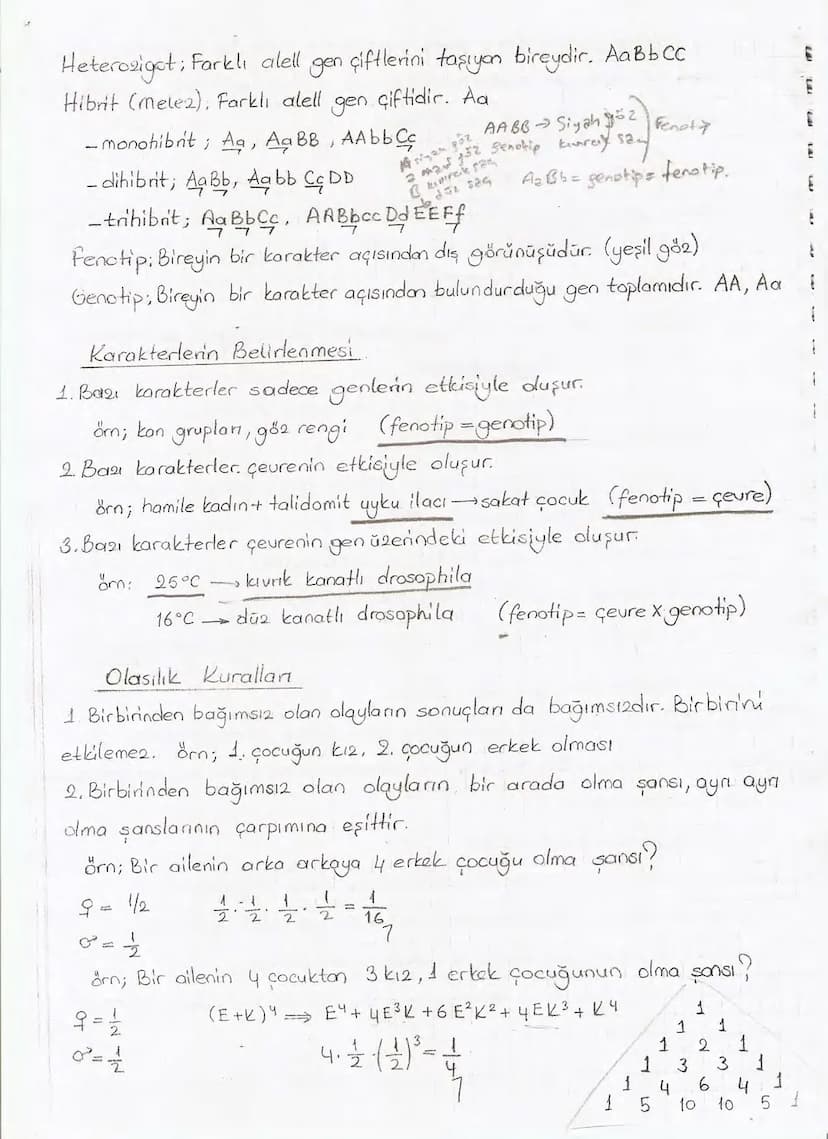 Heterozigot; Farklı alell gen çiftlerini taşıyan bireydir. AaBbCC
Hibrit (melez); Farklı alell gen çiftidir. Aa
- monohibrit; Aa, AaBB, AAbbCc
AABB → Siyah göz
genotip kıvırcık saç
Fenotip
A siyah göz
a mavi göz
B kıvırcık saç
b düz saç
- dihibrit; AaBb, AabbCcDD
AaBb = genotip = fenotip.
- trihibrit; AaBbCc, AABbccDdEEFf
Fenotip; Bireyin bir karakter açısından dış görünüşüdür. (yeşil göz)
Genotip; Bireyin bir karakter açısından bulundurduğu gen toplamıdır. AA, Aa
Karakterlerin Belirlenmesi
1. Bazı karakterler sadece genlerin etkisiyle oluşur.
örn; kan grupları, göz rengi (fenotip = genotip)
2. Bazı karakterler çevrenin etkisiyle oluşur.
örn; hamile kadın + talidomit uyku ilacı → sakat çocuk (fenotip = çevre)
3. Bazı karakterler çevrenin gen üzerindeki etkisiyle oluşur.
örn: 25°C → kıvrık kanatlı drosophila
16°C → düz kanatlı drosophila (fenotip = çevre x genotip)
Olasılık Kuralları
1. Birbirinden bağımsız olan olayların sonuçları da bağımsızdır. Birbirini
etkilemez. örn; 1. çocuğun kız, 2. çocuğun erkek olması
2. Birbirinden bağımsız olan olayların bir arada olma şansı, ayrı ayrı
olma şanslarının çarpımına eşittir.
örn; Bir ailenin arka arkaya 4 erkek çocuğu olma şansı?
♀ = 1/2 1/2 · 1/2 · 1/2 · 1/2 = 1/16
♂ = 1/2
örn; Bir ailenin 4 çocuktan 3 kız, 1 erkek çocuğunun olma şansı?
♀ = 1/2 (E+K)⁴ ⇒ E⁴ + 4E³K + 6E²K² + 4EK³ + K⁴
♂ = 1/2 4 · 1/2 · (1/2)³ = 1/4
1
1 1
1 2 1
1 3 3 1
1 4 6 4 1
1 5 10 10 5 1